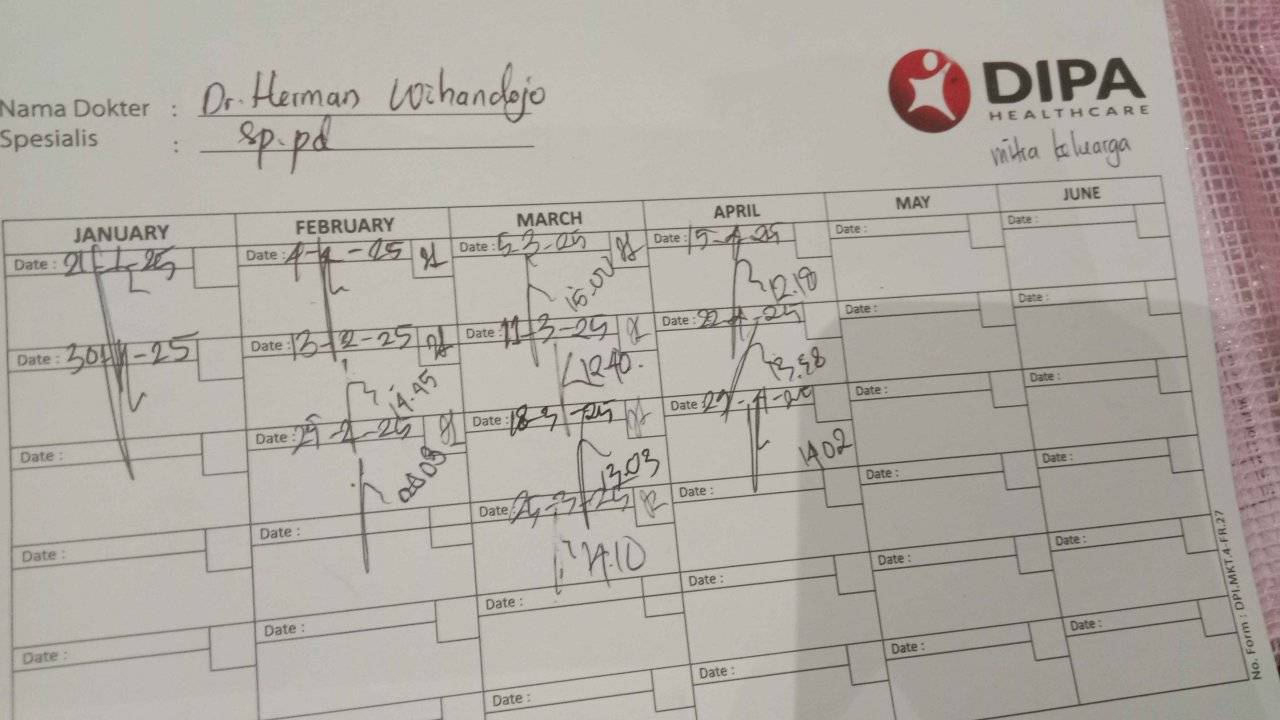 DIPA
HEALTHCARE
mitra keluarga
Nama Dokter : Dr. Herman Wihandojo
Spesialis : Sp.pd
JANUARY FEBRUARY MARCH APRIL MAY JUNE
Date : 21-1-25 Date : 4-2-25 Date : 5-3-25 Date : 15-4-25 Date : Date :
15.00 12.10
Date : 30-1-25 Date : 13-2-25 Date : 11-3-25 Date : 22-4-25 Date : Date :
14.45 12.40. 13.38
Date : Date : 25-2-25 Date : 18-3-25 Date : Date : Date :
13.03 14.02
Date : Date : Date : 25-3-25 Date : Date : Date :
14.10
Date : Date : Date : Date : Date : Date :
Date : Date : Date : Date :
No. Form : DPI.MKT.4-FR.27